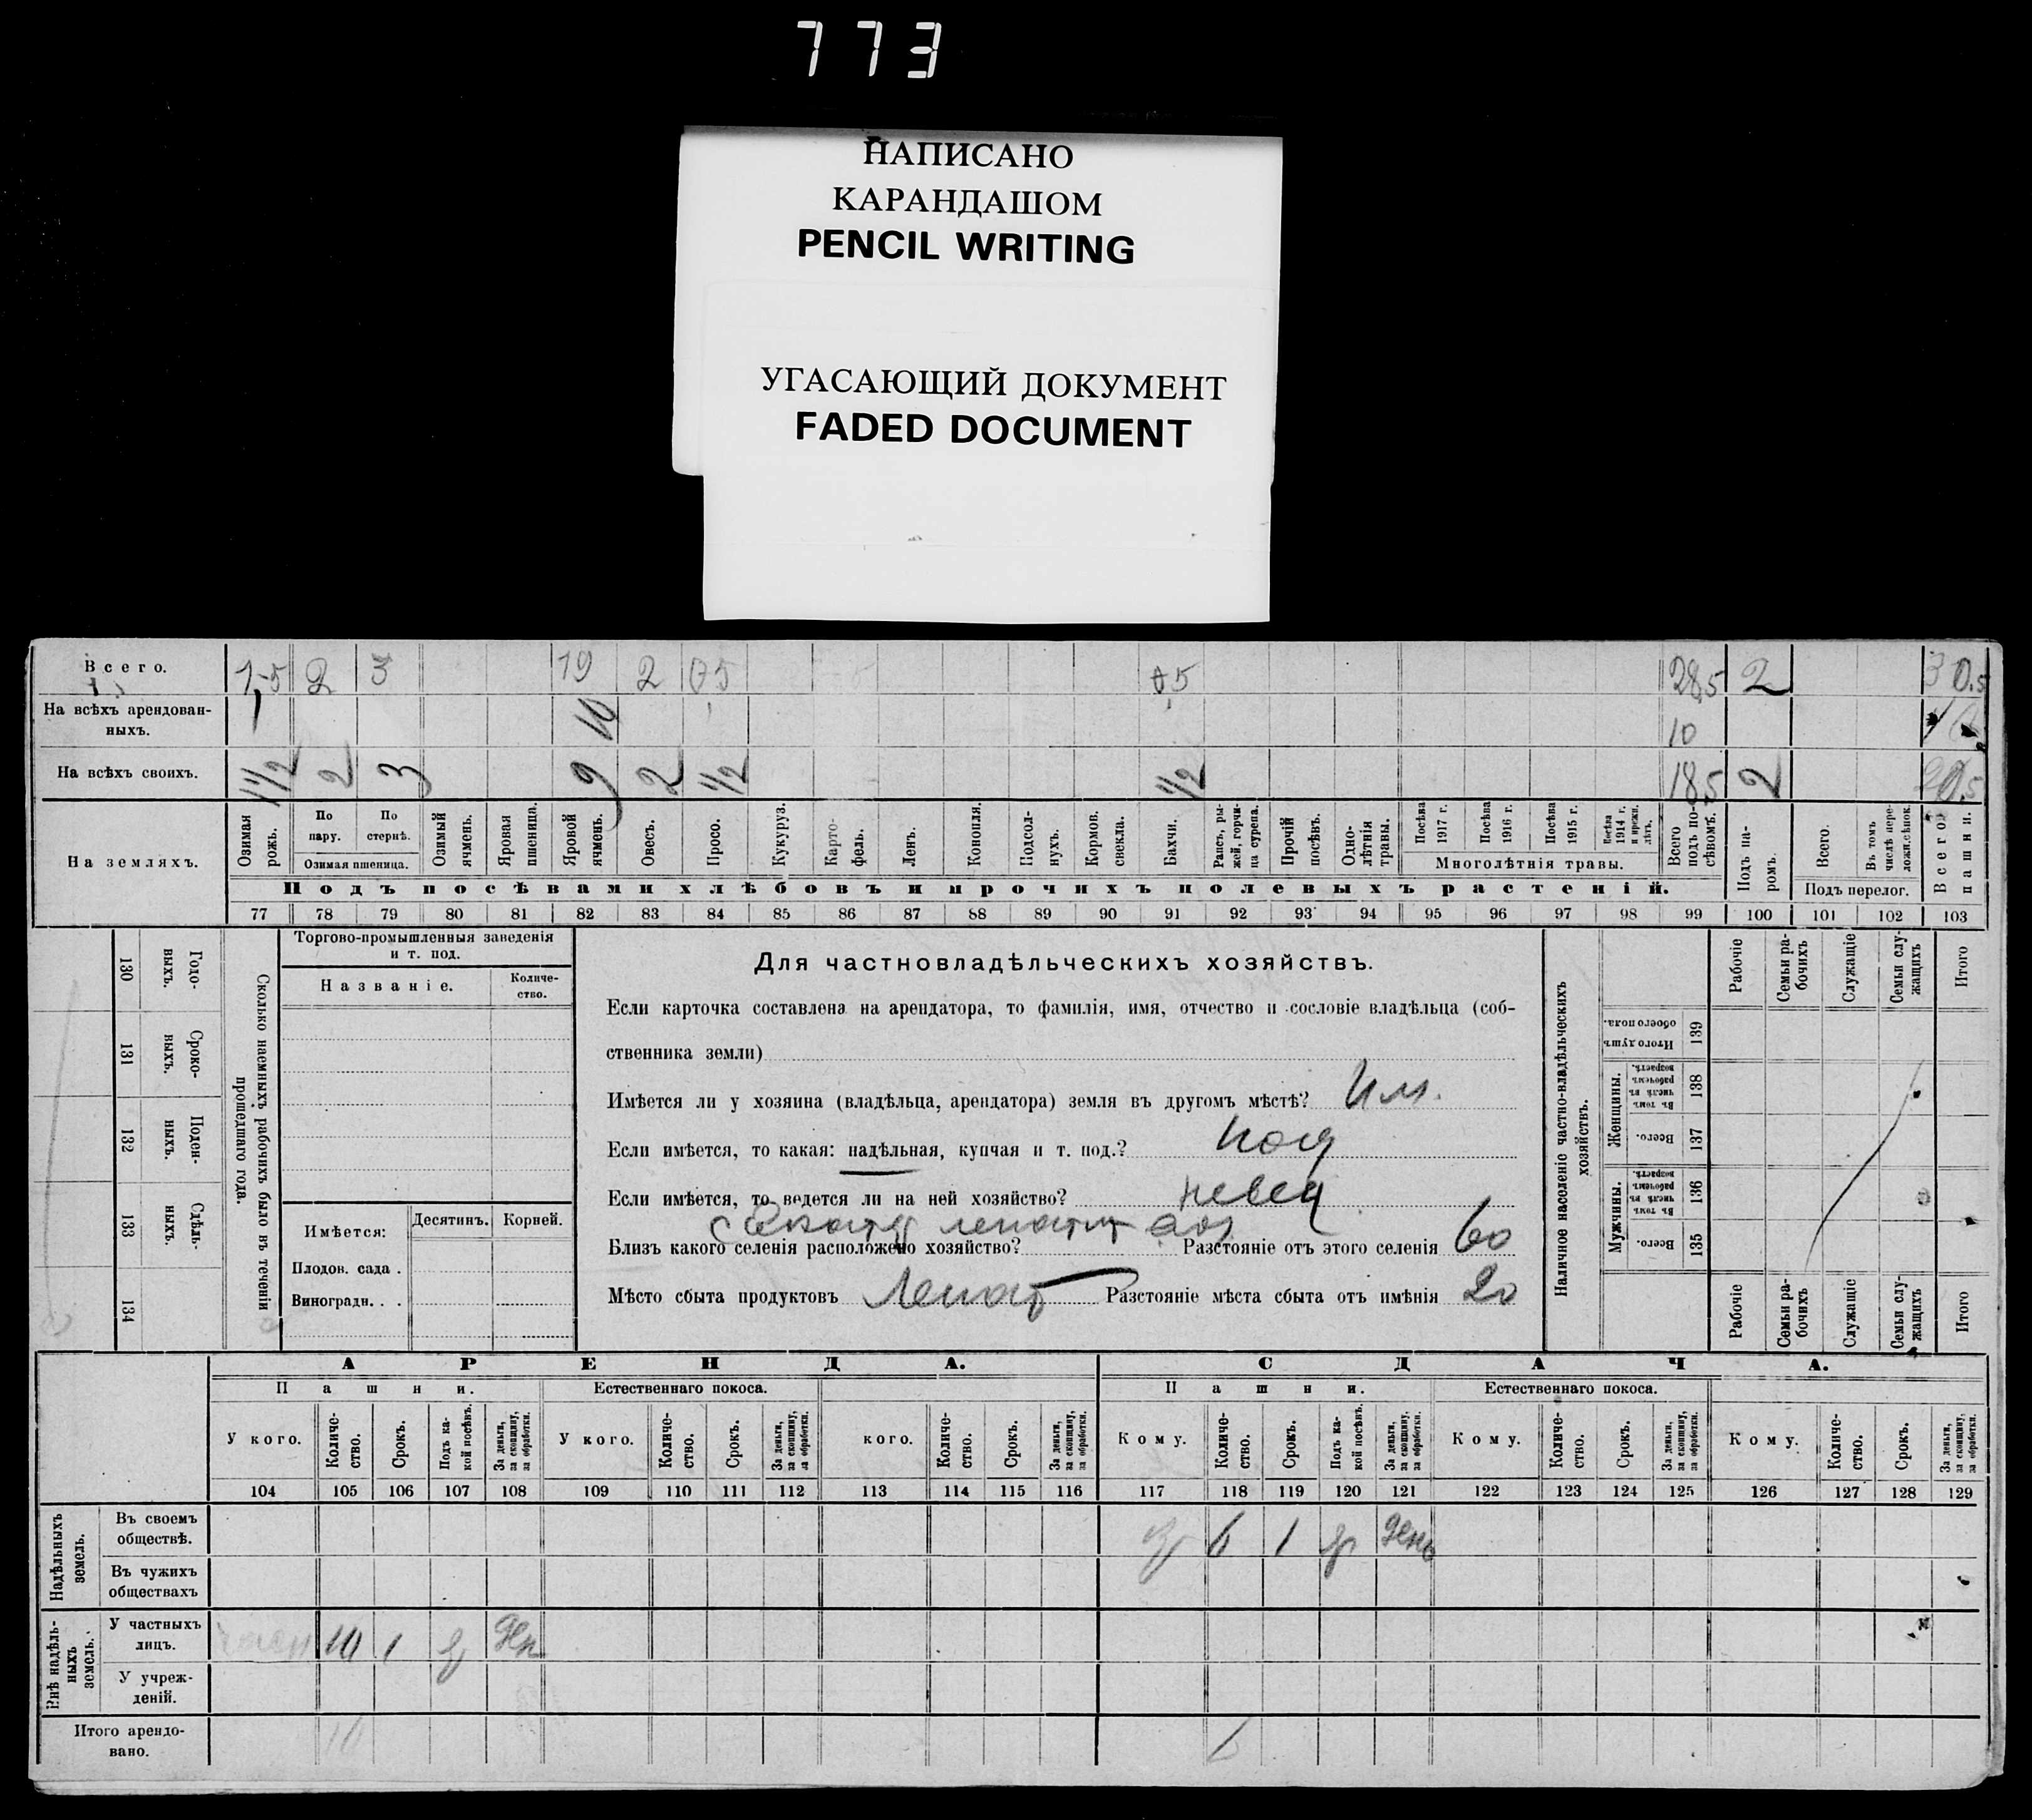 773
НАПИСАНО
КАРАНДАШОМ
PENCIL WRITING
УГАСАЮЩИЙ ДОКУМЕНТ
FADED DOCUMENT
Всего. 1,5 2 3 19 2 0,5 0,5 28,5 2 30,5
На всѣхъ арендован-
ныхъ. 10 10
На всѣхъ своихъ. 1½ 2 3 9 2 ½ ½ 18,5 2 20,5
На земляхъ.
Озимая рожь.
По пару.
По стернѣ.
Озимая пшеница.
Озимый ячмень.
Яровая пшеница.
Яровой ячмень.
Овесъ.
Просо.
Кукуруз.
Карто-
фель.
Ленъ.
Конопля.
Подсол-
нухъ.
Кормов. свекла.
Бахчи.
Рапсъ, ры-
жей, горчи-
ца сурепа.
Прочій посѣвъ.
Одно-
лѣтнія травы.
Посѣва 1917 г.
Посѣва 1916 г.
Посѣва 1915 г.
Посѣва 1914 г. и прежн. лѣтъ.
Многолѣтнія травы.
Всего подъ по-
сѣвомъ.
Подъ па-
ромъ.
Всего.
Въ томъ числѣ пере-
ложн. сѣнок.
Подъ перелог.
Всего пашни.
Подъ посѣвами хлѣбовъ и прочихъ полевыхъ растеній.
77 78 79 80 81 82 83 84 85 86 87 88 89 90 91 92 93 94 95 96 97 98 99 100 101 102 103
130 Годо-
выхъ.
131 Сроко-
ныхъ.
132 Поден-
ныхъ.
133 Сдѣль-
ныхъ.
134
Сколько наемныхъ рабочихъ было въ теченіи
прошедшаго года.
Торгово-промышленныя заведенія
и т. под.
Названіе. Количе-
ство.
Имѣется: Десятинъ. Корней.
Плодов. сада .
Виноградн. . .
Для частновладѣльческихъ хозяйствъ.
Если карточка составлена на арендатора, то фамилія, имя, отчество и сословіе владѣльца (соб-
ственника земли)
Имѣется ли у хозяина (владѣльца, арендатора) земля въ другомъ мѣстѣ? Им.
Если имѣется, то какая: надѣльная, купчая и т. под.?
Если имѣется, то ведется ли на ней хозяйство?
Близъ какого селенія расположено хозяйство? Разстояніе отъ этого селенія 60
Мѣсто сбыта продуктовъ Разстояніе мѣста сбыта отъ имѣнія 20
Наличное населеніе частно-владѣльческихъ
хозяйствъ.
Итого душъ обоего пола. 139
Женщины.
Въ томъ числѣ въ рабочемъ возрастѣ. 138
Всего. 137
Мужчины.
Въ томъ числѣ въ рабочемъ возрастѣ. 136
Всего. 135
Рабочіе
Семьи ра-
бочихъ
Служащіе
Семьи слу-
жащихъ
Итого
Рабочіе
Семьи ра-
бочихъ
Служащіе
Семьи слу-
жащихъ
Итого
АРЕНДА. СДАЧА.
Пашни. Естественнаго покоса. Пашни. Естественнаго покоса.
У кого. Количе-
ство. Срокъ. Подъ ка-
кой посѣвъ. За деньги, за скопщину, за обработки.
У кого. Количе-
ство. Срокъ. За деньги, за скопщину, за обработки.
кого. Количе-
ство. Срокъ. За деньги, за скопщину, за обработки.
Кому. Количе-
ство. Срокъ. Подъ ка-
кой посѣвъ. За деньги, за скопщину, за обработки.
Кому. Количе-
ство. Срокъ. За деньги, за скопщину, за обработки.
Кому. Количе-
ство. Срокъ. За деньги, за скопщину, за обработки.
104 105 106 107 108 109 110 111 112 113 114 115 116 117 118 119 120 121 122 123 124 125 126 127 128 129
Надѣльныхъ земель.
Въ своемъ
обществѣ. 6 1
Въ чужихъ
обществахъ
Внѣ надѣль-
ныхъ земель.
У частныхъ
лицъ. 10 1
У учреж-
деній.
Итого арендо-
вано. 10 6